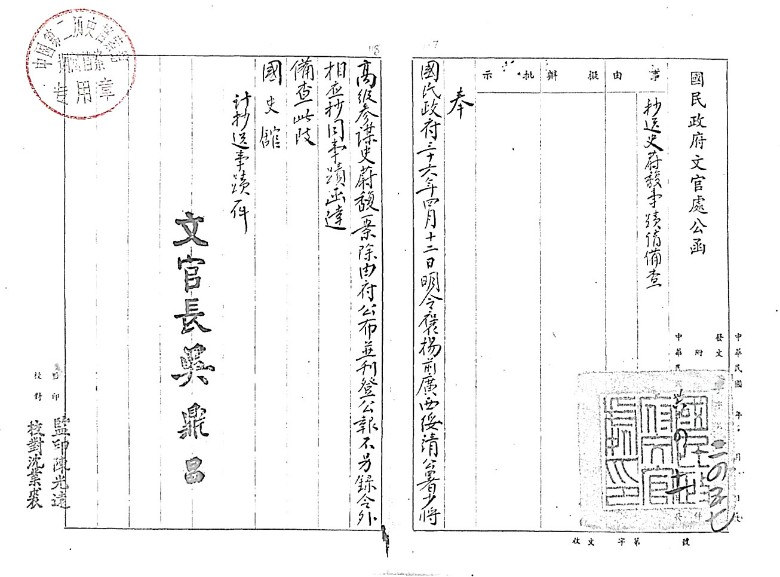 國民政府文官處公函
事由
擬辦
批示
抄送史蔚馥事蹟請備查
中華民國 年 月 日
發文
附
二〇五七
收文 字第 號
奉
國民政府三十六年四月十二日明令褒揚前廣西綏靖公署少將
高級參謀史蔚馥一案除由府公布並刊登公報不另錄令外
相應抄同事蹟函達
備查此致
國史館
計抄送事蹟一件
文官長吳鼎昌
監印
校對
監印陳光遠
校對沈業裴
中国第二历史档案馆
专用章